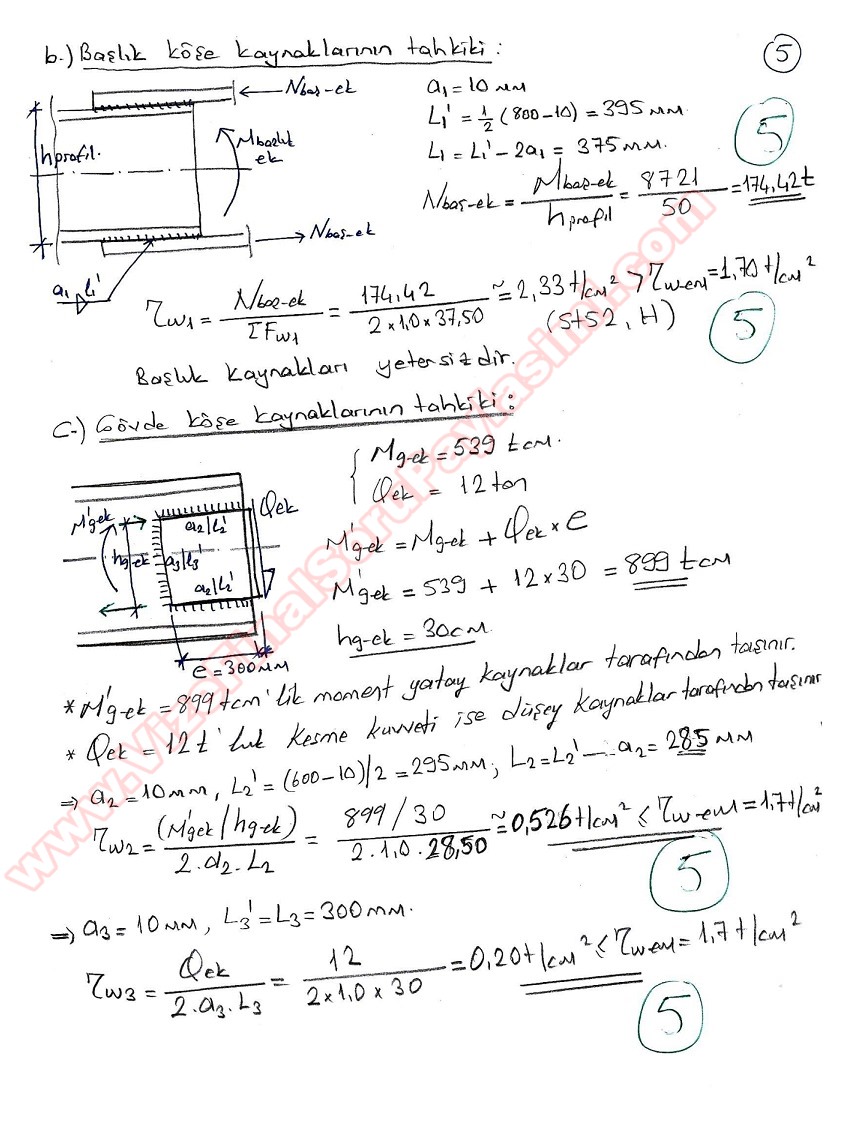 b.) Başlık köşe kaynaklarının tahkiki :
5
Nbaş-ek
hprofil.
Mbaşlık
ek
Nbaş-ek
a1 L1'
a1 = 10 mm
L1' = 1/2 (800-10) = 395 mm
L1 = L1' - 2a1 = 375 mm.
5
Nbaş-ek = Mbaş-ek / hprofil = 8721 / 50 = 174,42 t
τw1 = Nbaş-ek / ΣFw1 = 174,42 / 2x1,0x37,50 ≅ 2,33 t/cm² > τw-em = 1,70 t/cm²
(St52, H)
5
Başlık kaynakları yetersizdir.
C-) Gövde köşe kaynaklarının tahkiki :
Mg-ek = 539 tcm.
Qek = 12 ton
M'g-ek
hg-ek
a2/L2'
a3/L3'
a2/L2'
Qek
e = 300mm
M'g-ek = Mg-ek + Qek x e
M'g-ek = 539 + 12x30 = 899 tcm
hg-ek = 30cm.
* M'g-ek = 899 tcm'lik moment yatay kaynaklar tarafından taşınır.
* Qek = 12 t'luk kesme kuvveti ise düşey kaynaklar tarafından taşınır
⇒ a2 = 10mm, L2' = (600-10)/2 = 295mm, L2 = L2' - a2 = 285 mm
τw2 = (M'gek / hg-ek) / 2.a2.L2 = 899 / 30 / 2.1,0.28,50 ≅ 0,526 t/cm² ≤ τw-em = 1,7 t/cm²
5
⇒ a3 = 10 mm, L3' = L3 = 300 mm.
τw3 = Qek / 2.a3.L3 = 12 / 2x1,0x30 = 0,20 t/cm² ≤ τwem = 1,7 t/cm²
5
www.VizeFinalSoruPaylasimi.com